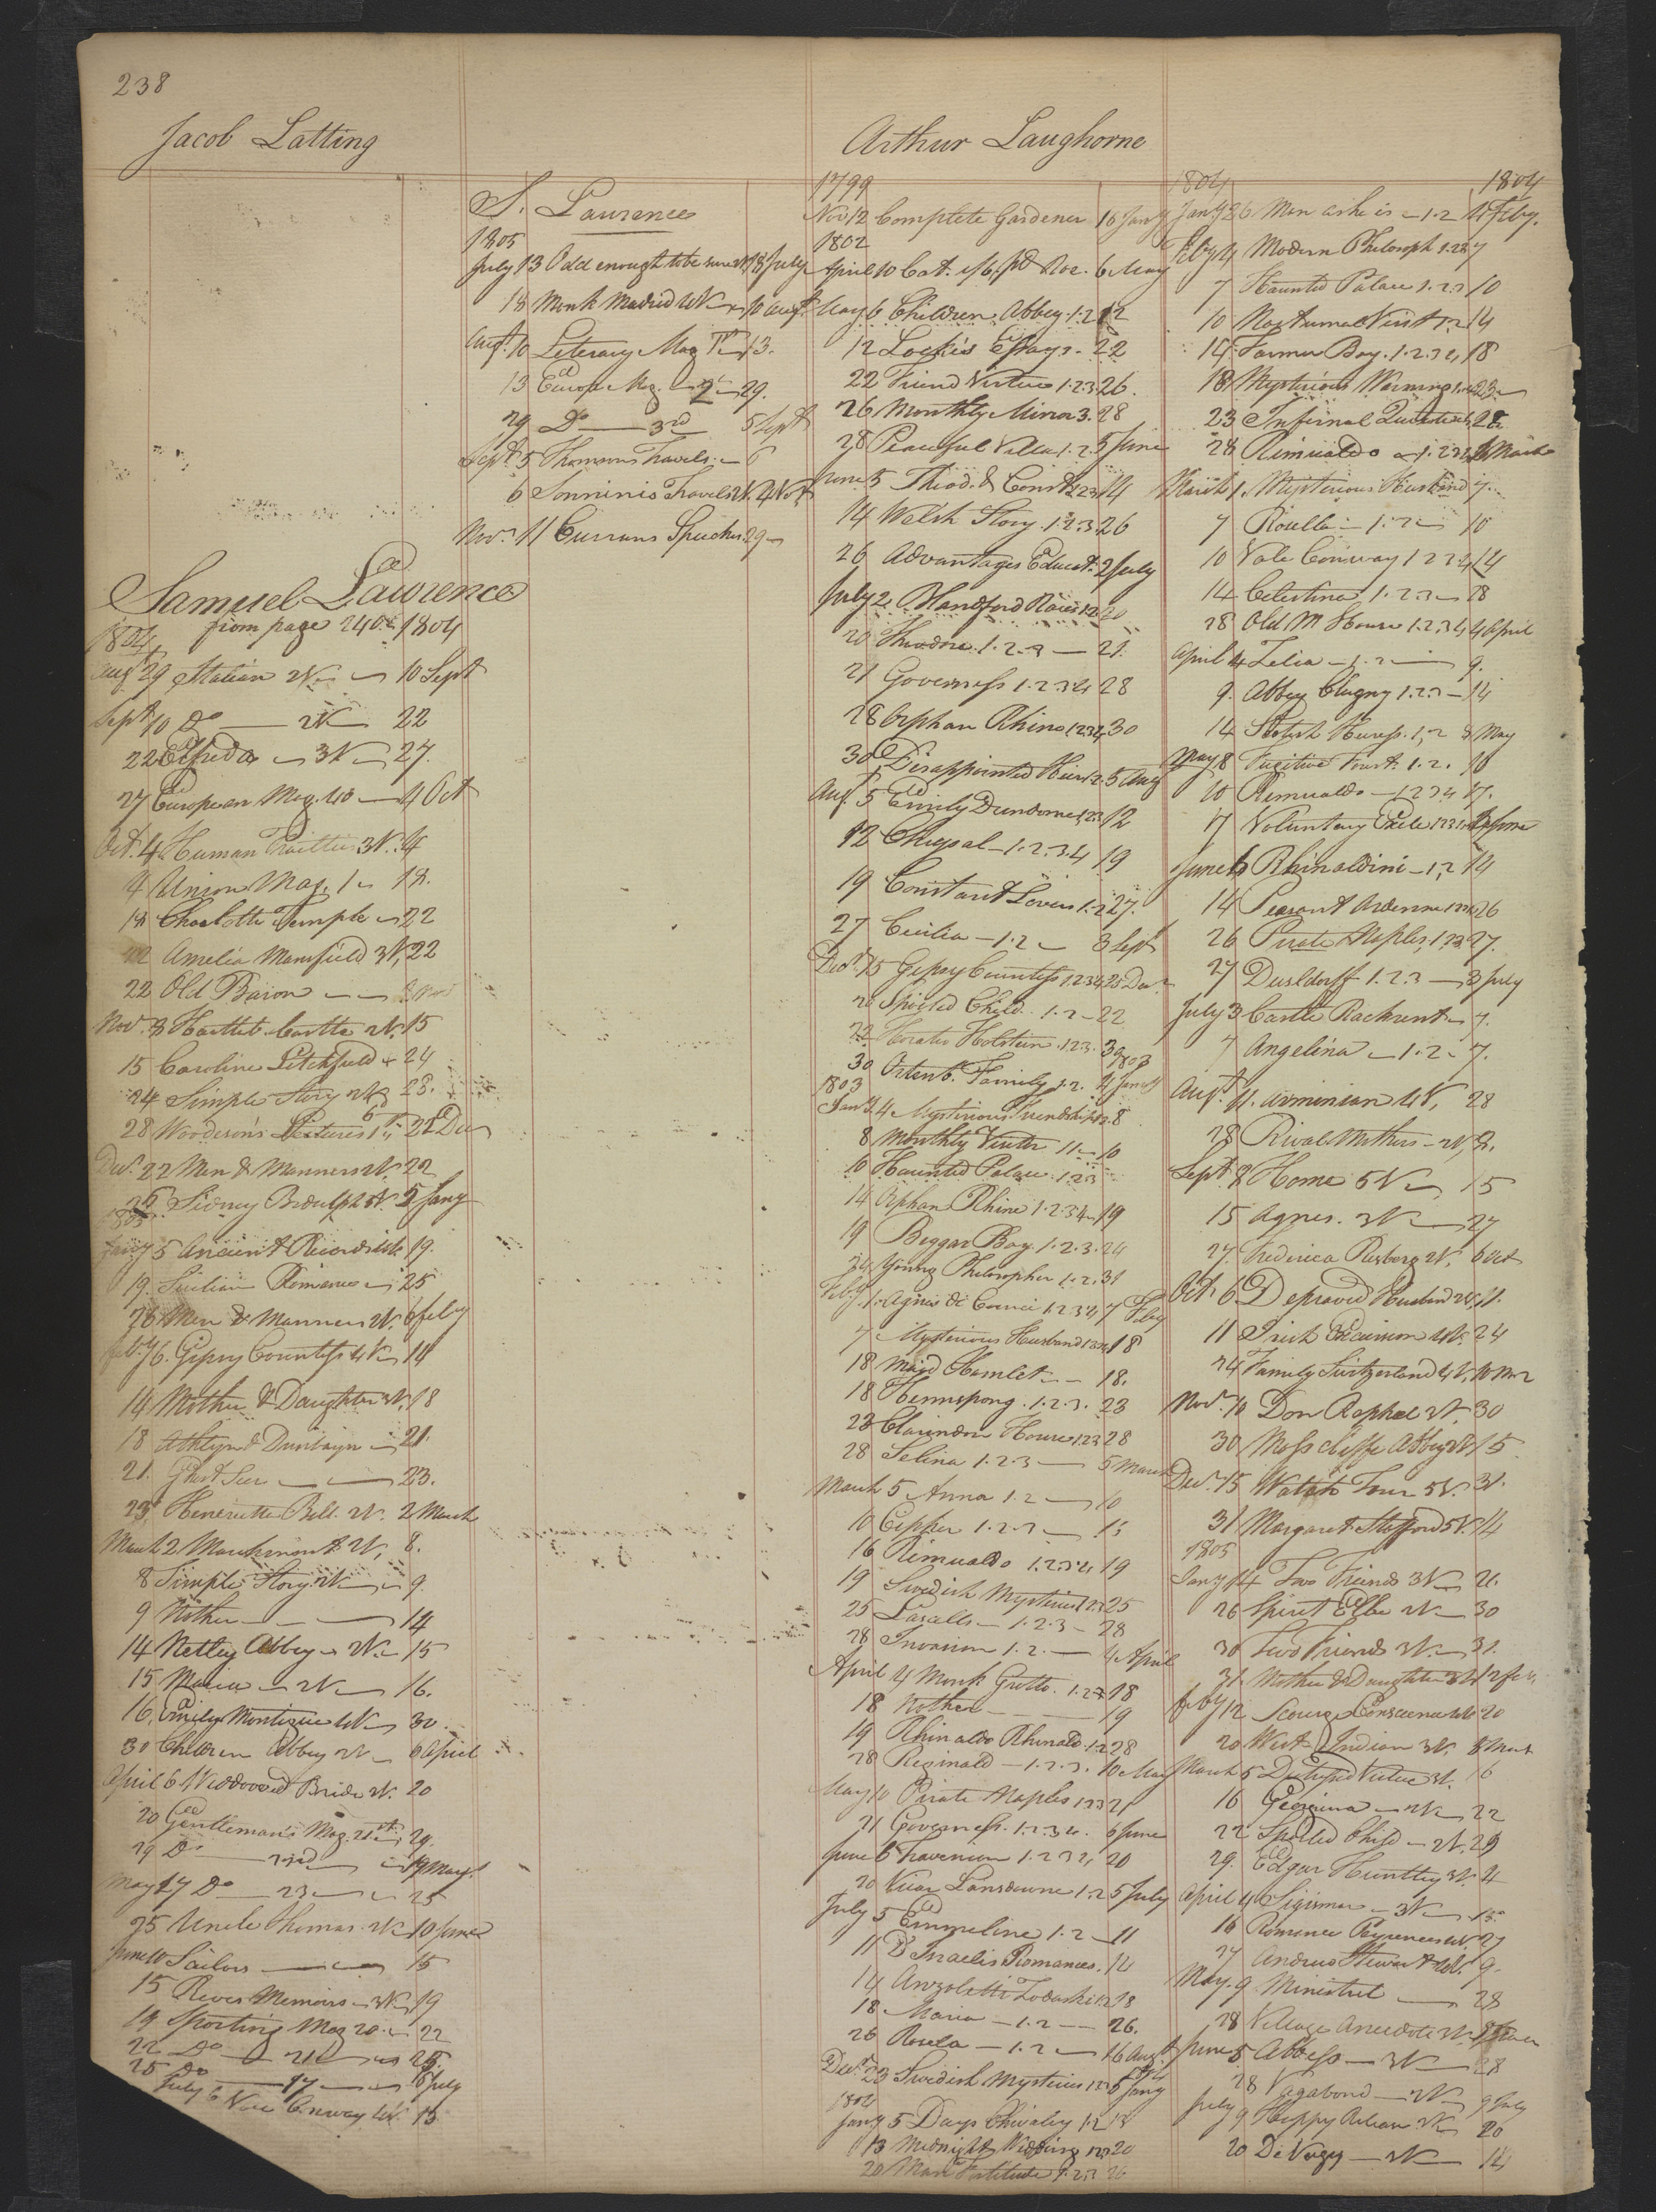 238
Jacob Latting
Samuel Lawrence
from page 240
1804 1804
Aug 29 Statira 2V 10 Sept
Sept 10 Do 2V 22
22 Elfreda 3V 27.
27 European Mag. 40 4 Oct
Oct. 4 Human 3V. 4
4 Union Mag. 1 18.
18 Charlotte Temple 22
22 Amelia Mansfield 3V. 22
22 Old Baron
Nov. 8 Castle 2V. 15
15 Caroline Litchfield 24
24 Simple Story 2V 28.
28 Wooderson's Lectures 22 Dec
Dec. 22 Men & Manners 2V. 22
Sidney Bidulph 5V. 5 Jany
Jany 5 Ancient Records 19.
19. Sicilian Romance 25
Men & Manners 2V. 6 feby
feby 6. Gipsy Countess 4V 14
14 Mother & Daughter 3V. 18
18 Athlyn & Dunbayn 21.
21. Ghost Seer 23.
23 Henrietta Bell. 2V. 2 March
March 2 Marchmont 2V, 8.
8 Simple Story 2V 9.
9 Nother 14
14 Netley Abbey 2V. 15
15 Maria 2V 16.
16. Emily Montigue 4V 30.
30 Children Abbey 2V 6 April
April 6 Widdowed Bride 2V. 20
20 Gentleman's Mag. 21st 29.
29 Do
May 17 Do 23 25
25 Uncle Thomas 2V 10 June
June 10 Sailors 15
15 Rives Memoirs 3V 19
19 Sporting Mag 20 22
22 Do 21 25
25 Do 17 6 July
July 6 Vale Conway 4V. 15
S. Lawrence
1805
July 13 Odd enough to be sure 2V 18 July
18 Monk Madrid 4V 10 Augt
Augt. 10 Literary Mag 1st 13.
13 Europe Mag. 2 29.
29 Do 3rd 5 Sept
Sept. 5 Thomsons Travels 6
6 Sonninis Travels 2V. 4 Nov
Nov. 11 Currans Speeches 29
Arthur Laughorne
1799
Nov 12 Complete Gardener 16 Jany
1802
April 10 Cat. 1/6. pd Roz. 6 May
May 6 Children Abbey 1.2 12
12 Locke's Essays. 22
22 Friend Virtue 1.2.3 26.
26 Monthly Mirror 3. 28
28 Peaceful Villa 1.2. 5 June
June 5 Theod. & Const 1.2.3 14
14 Welsh Story. 1.2.3 26
26 Advantages Educat. 2 July
July 2 Handford Races 1.2 20
20 Theodore. 1.2.3 21.
21 Governess 1.2.3.4 28
28 Orphan Rhine 1234 30
30 Disappointed Heir 1.2. 5 Aug
Aug. 5 Emily Dundorne 1.23 12
12 Chrysal 1.2.3.4 19
19 Constant Lover 1.2 27.
27 Cecilia 1.2 3 Sept
Dec. 15 Gipsy Countess 1.2.3.4 20 Dec
20 Spoiled Child. 1.2 22
22 Horatio Holstein. 1.2.3. 30
1803
30 Ortenb. Family 1.2. 4 Jany
1803
Jany 4 Mysterious Friendship 1.2. 8
8 Monthly Visiter 11 10
10 Haunted Palace 1.2.3
14 Orphan Rhine 1.2.3.4 19
19 Beggar Boy. 1.2.3. 24
24 Young Philosopher 1.2. 31
Feby. 1. Agnes de Courci 1.2.3.4 7 Feby
7 Mysterious Husband 1234 18
18 Maid Hamlet 18.
18 Hermsprong. 1.2.3. 23
23 Clarendon House 1.2.3 28
28 Selina 1.2.3 5 March
March 5 Anna 1.2 10
10 Cipher 1.2.3 15
16 Rimualdo 1.2.3.4 19
19 Swedish Mysteries 1.2.3 25
25 Lascelles 1.2.3 28
28 Invasion 1.2. 4 April
April 4 Monk Grotto. 1.2 18
18 Nother 19
19 Rhinaldo Rhinald. 1.2 28
28 Reginald 1.2.3. 10 May
May 10 Pirate Naples 1.2.3 21
21 Governess. 1.2.3.4. 6 June
June 6 Travenion 1.2.3.4 20
20 Vicar Lansdowne 1.2 5 July
July 5 Emmeline 1.2 11
11 D'Israelis Romances. 14
14 Anzoletti Zodaski 1.2 18
18 Maria 1.2 26.
26 Rosela 1.2 16 Augt
Decr. 23 Swedish Mysteries 1.2.3 5 Jany
1804
Jany 5 Days Chivalry 1.2 13
13 Midnight Wedding 1.2.3 20
20 Man Fortitude 1.2.3 26
1804 1804
Jany 26 Man as he is 1.2 4 Feby.
Feby 4 Modern Philosoph 1.2.3 7
7 Haunted Palace 1.2.3 10
10 Nocturnal Visit 1.2 14
14 Farmer Boy. 1.2.3.4 18
18 Mysterious Warning 1.2.3.4 23
23 Infernal 28
28 Rimualdo 1.2.3.4 1 March
March 1. Mysterious Husband 7.
7 Rosella 1.2 10
10 Vale Conway 1 2 3 4 14
14 Celestina 1.2.3 28
28 Old M House 1.2.3.4 4 April
April 4 Zelia 1.2 9.
9. Abbey Clugny 1.2.3 14
14 Scotish Heiress. 1.2 8 May
May 8 Fugitive Forest. 1.2. 10
10 Rimualdo 1.2.3.4 17.
17 Voluntary Exile 6 June
June 6 Rhinaldini 1.2 14
14 Peasant Ardenne 26
26 Pirate Naples, 1.2.3 27.
27 Dusldorff 1.2.3 3 July
July 3 Castle Rackrent 7.
7 Angelina 1.2 7.
Augt. 11. Arminian 4V, 28
28 Rival Mothers 2V, 8.
Sept. 8 Home 5V 15
15 Agnes. 3V 27
27. Frederica Risberg 2V, 6 Oct
Oct. 6 Depraved Husband 2V, 11.
11 Irish Excursion 4V. 24
24 Family Switzerland 4V, 10 Nov
Nov. 10 Don Raphael 3V 30
30 Moss cliffe Abbey 2V 15
Dec. 15 Watch Tower 5V. 31.
31 Margaret Stafford 5V. 14
1805
Jany 14 Two Friends 3V 26.
26 Spirit Elbe 2V 30
30 Two Friends 3V 31.
31. Mother & Daughter 3V 12 feb.
feby 12 Scourge Conscience 4V 20
20 West Indian 3V. 5 March
March 5 Distressed Virtue 3V. 16
16 Georgina 2V 22
22 Spoiled Child 2V. 29
29. Edgar Huntley 3V. 4
April 4 Sigismar 3V 16
16 Romance Pyrenees 4V 27
27 Andrew Stewart 4V. 9.
May. 9 Minstrel 28
28 Village Anecdote 3V. 5 June
June 5 Abbess 3V 28
28 Vagabond 2V 9 July
July 9 Happy Release 3V 20
20 De Valcey 2V 14